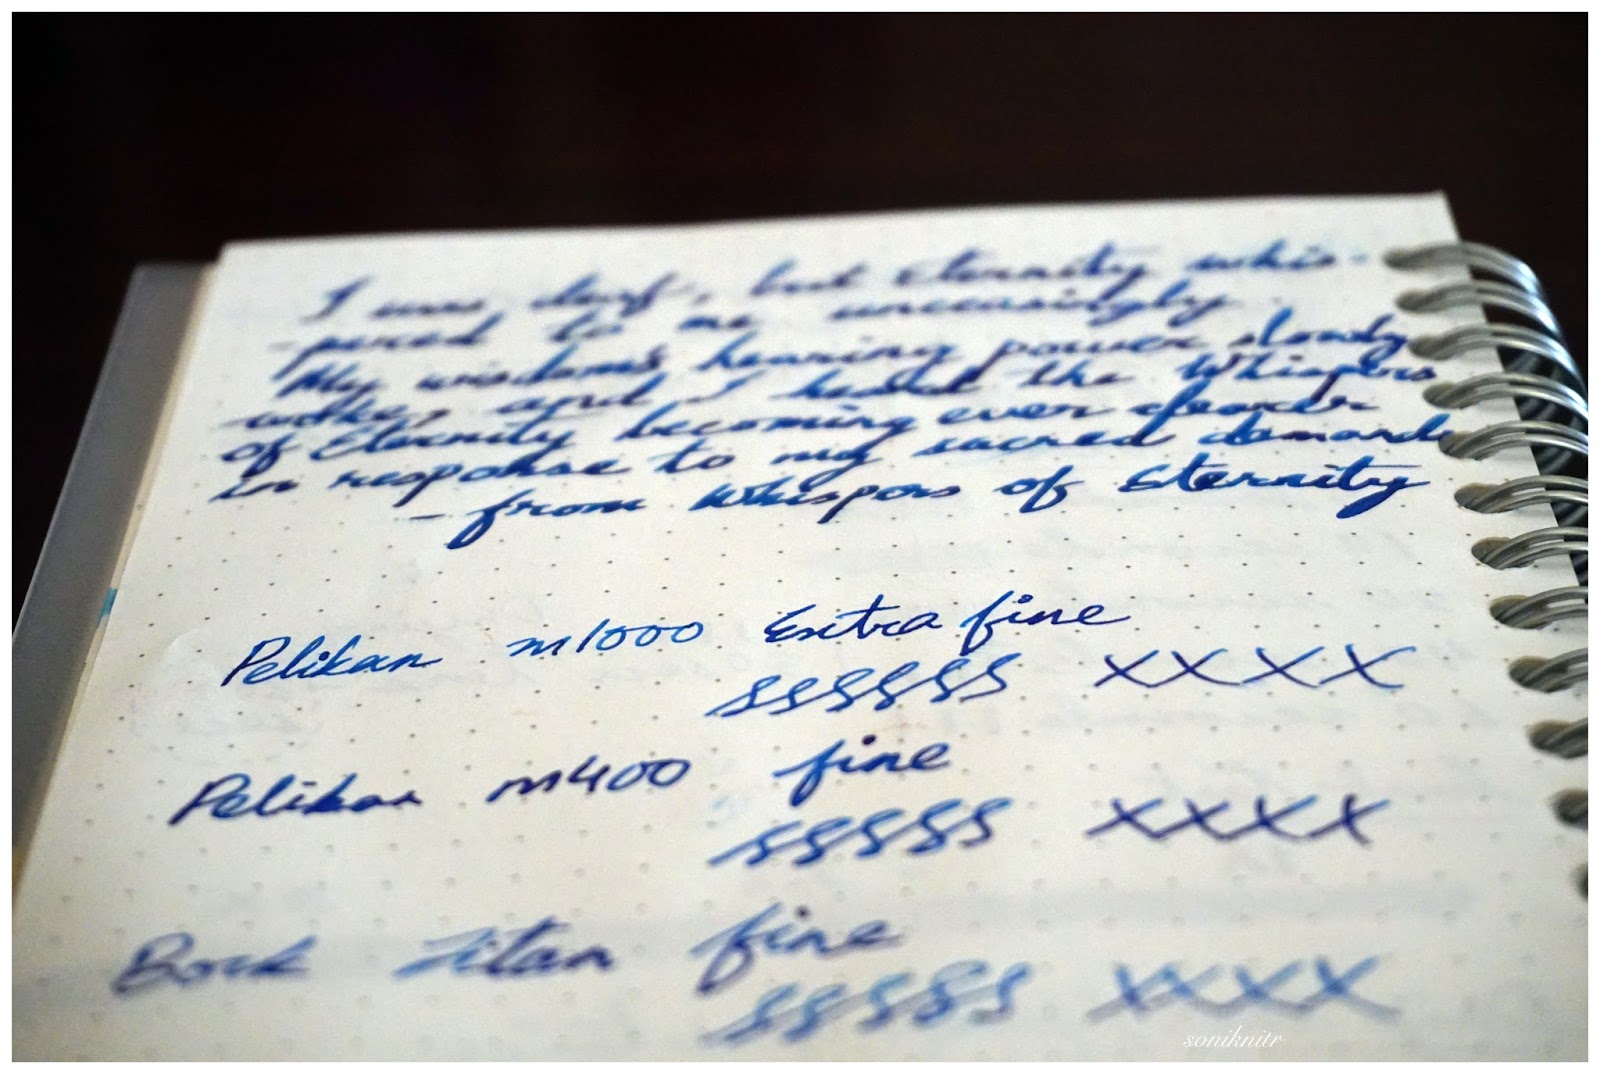 I was deaf, but Eternity whis-
-pered to me unceasingly.
My wisdom's hearing power slowly
woke, and I heard the Whispers
of Eternity becoming ever clearer
in response to my sacred demands
- from Whispers of Eternity
Pelikan m1000 Extra fine
ssssss xxxx
Pelikan m400 fine
sssss xxxx
Bock Titan fine
sssss xxxx
soniknitr